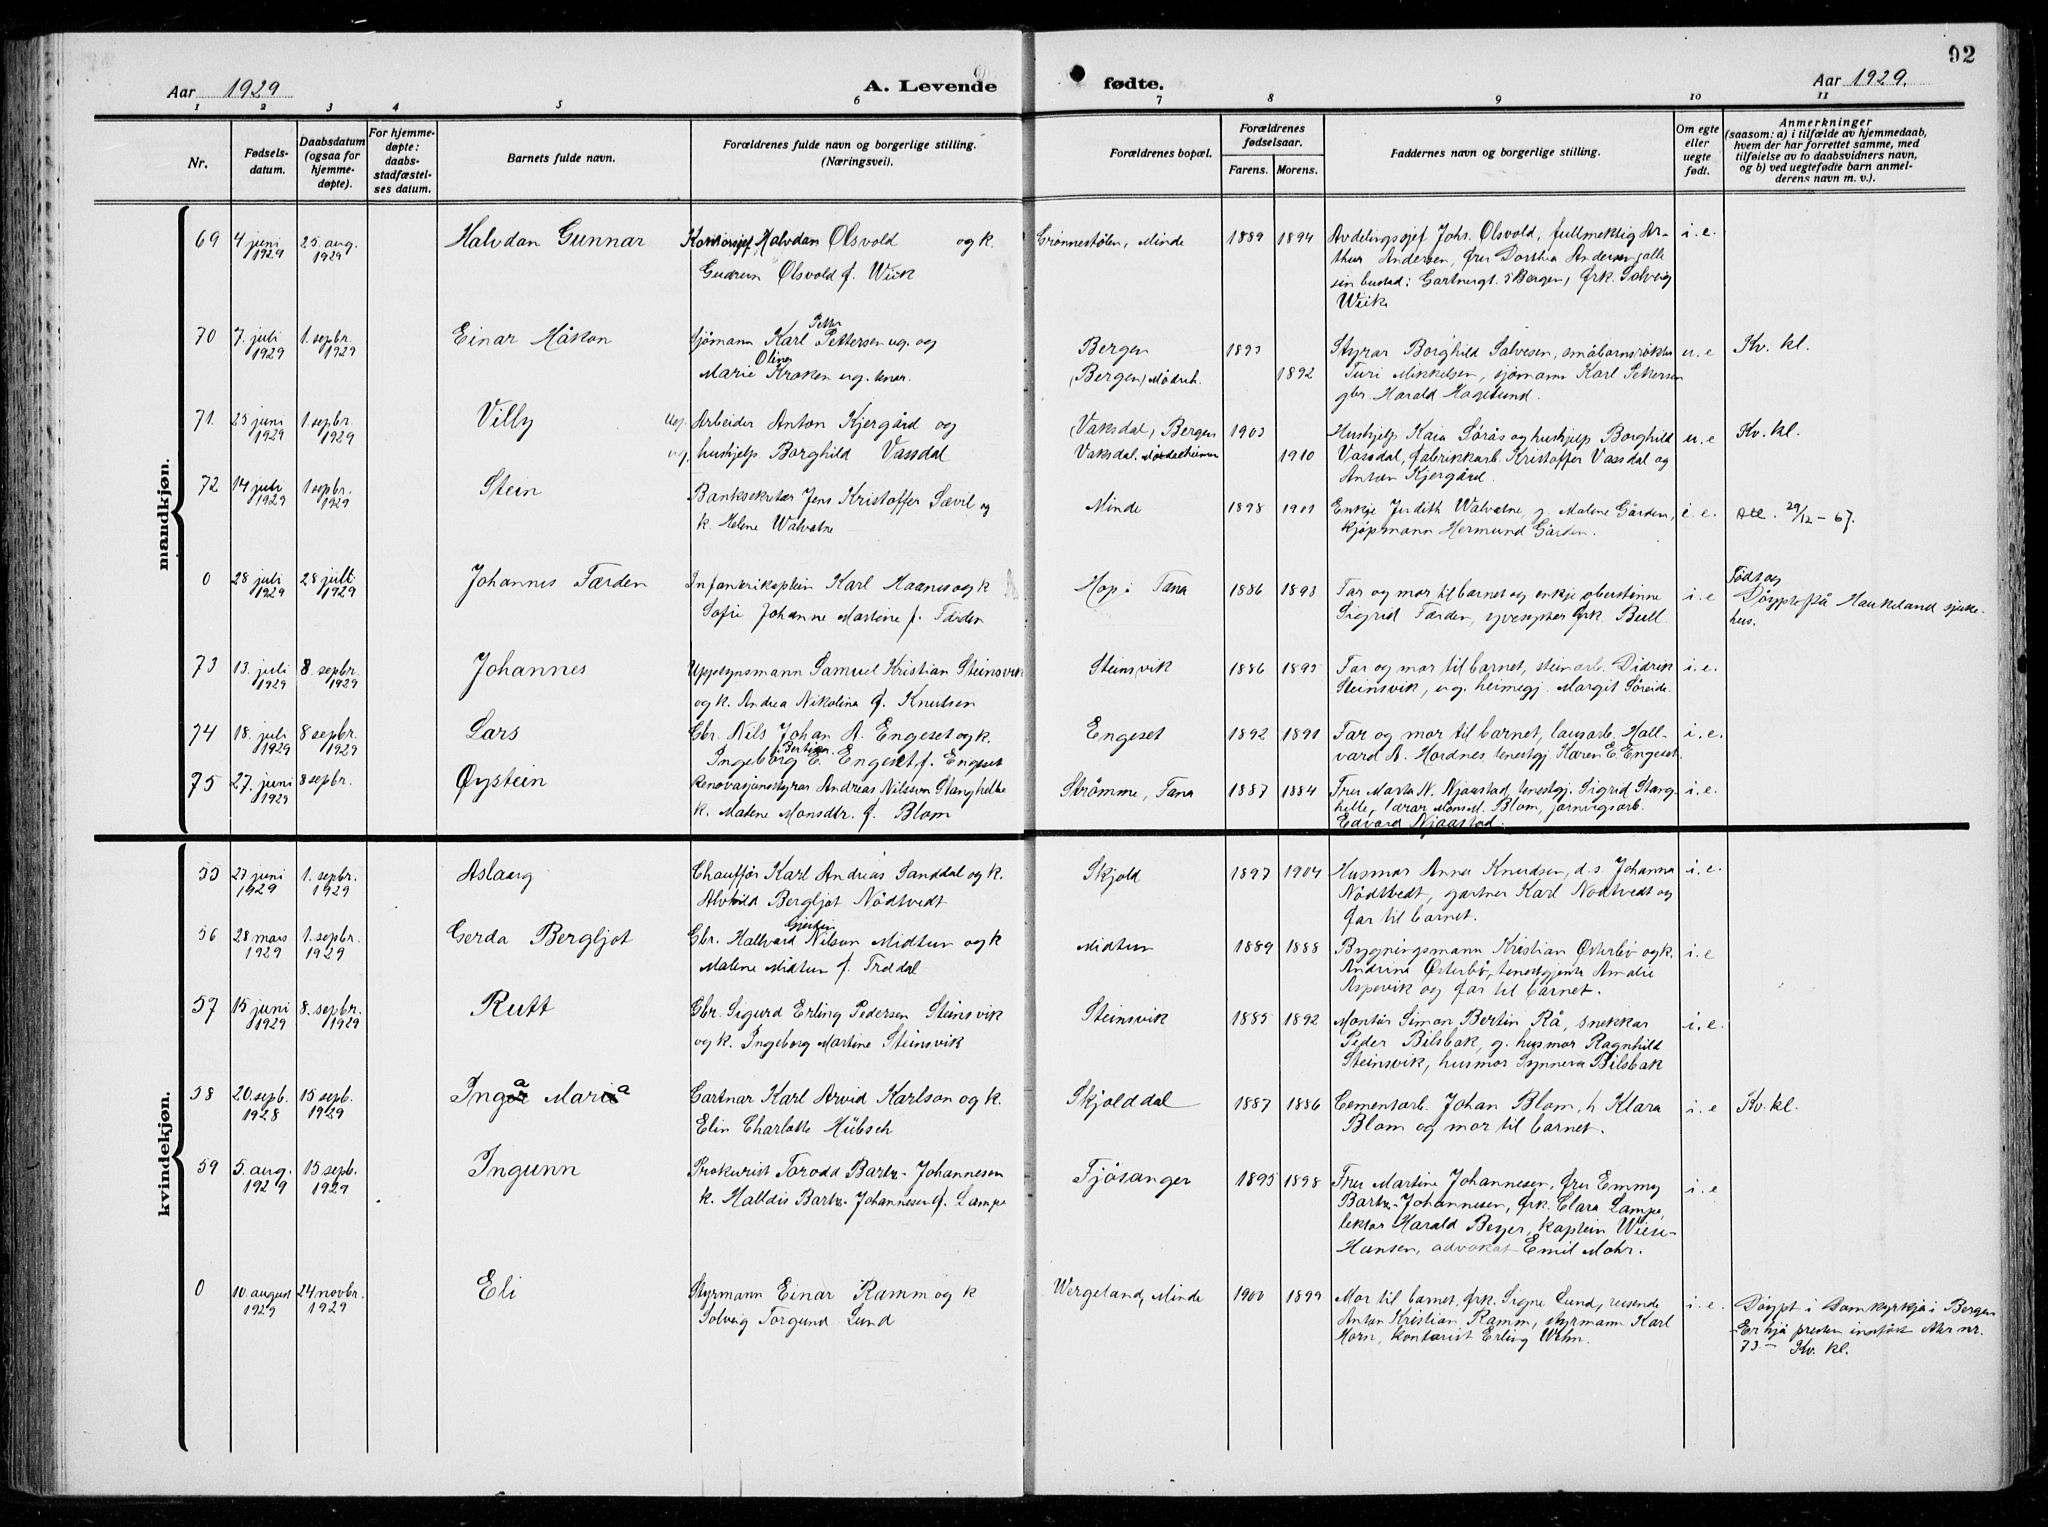 92
Aar 1929
A. Levende fødte.
Aar 1929.
1 2 3 4 5 6 7 8 9 10 11
Nr.
Fødsels-
datum.
Daabsdatum
(ogsaa for
hjemme-
døpte).
For hjemme-
døpte:
daabs-
stadfæstel-
ses datum.
Barnets fulde navn.
Forældrenes fulde navn og borgerlige stilling.
(Næringsvei).
Forældrenes bopæl.
Forældrenes
fødselsaar.
Farens. Morens.
Faddernes navn og borgerlige stilling.
Om egte
eller
uegte
født.
Anmerkninger
(saasom: a) i tilfælde av hjemmedaab,
hvem der har forrettet samme, med
tilføielse av to daabsvidners navn,
og b) ved uegtefødte barn anmel-
derens navn m. v.).
mandkjøn.
69 4 juni 1929 25 aug. 1929 Halvdan Gunnar
Kontorsjef Halvdan Olsvold og k.
Gudrun Olsvold f. Wiik
Grönnestölen, Minde 1889 1894
Avdelingssjef Johs. Olsvold, fullmektig Ar-
thur Andersen, fru Dorthea Andersen, alle
sin bustad: Gartnergt. 5 Bergen, frk. Solveig
Wiik
i. e.
70 7. juli 1929 1. septbr. 1929 Einar Håkon
Sjømann Karl Petter Pettersen ug. og
Marie Olina Kroken ug. tenar.
Bergen 1893
(Bergen) Mödreh. 1892
Styrar Borghild Salvesen, småbarnsrøkter
Turi Mikkelsen, sjömann Karl Petersen
gbr. Harald Hagelund.
u. e Kv. kl.
71. 25 juni 1929 1 septbr. 1929 Villy
ug. Arbeider Anton Kjergård og
ug. hushjelp Borghild Vassdal
Vaksdal, Bergen 1903
Vaksdal, Mödreheimen 1910
Hushjelp Kaia Sörås og hushjelp Borghild
Vassdal, fabrikkarb. Kristoffer Vassdal og
Anton Kjergård.
u. e Kv. kl.
72 14 juli 1929 1 septbr. 1929 Stein
Banksekretær Jens Kristoffer Sævil og
k. Helene Walvatne
Minde 1898 1901
Enkje Judith Walvatne, g. Malene Gården,
kjöpmann Hermund Gården.
i. e. Att. 29/12 - 67.
0 28 juli 1929 28 juli 1929 Johannes Færden
Infanterikaptein Karl Haanes og k
Sofie Johanne Martine f. Færden
Hop i Fana 1886 1893
Far og mor til barnet og enkje oberstinne
Sigrid Færden, yvesyster frk. Bull.
i. e
Födt og
Döypt på Haukeland sjuke-
hus.
73 13. juli 1929 8 septbr. 1929 Johannes
Uppsynsmann Samuel Kristian Steinsvik
og k. Andrea Nikolina f. Knutsen
Steinsvik 1886 1895
Far og mor til barnet, steinarb. Didrik
Steinsvik, ug. heimegj. Margit Söreide.
i. e.
74 18. juli 1929 8 septbr. 1929 Lars
Gbr. Nils Johan A. Engeset og k.
Ingeborg Bertina E. Engeset f. Engeset
Engeset 1892 1891
Far og mor til barnet, lausarb. Hall-
vard A. Hordnes, tenestgj. Karen E. Engeset
i. e.
75 27. juni 1929 8 septbr. Øystein
Renovasjonsstyrar Andreas Nilsson Stanghelle
k. Malene Monsdtr. f. Blom
Strömme, Fana 1887 1884
Fru Marta N. Njaastad, tenestgj. Sigrid Stang-
helle, lærar Mons M. Blom, jarnvegsarb.
Edvard Njaastad.
i. e.
kvindekjøn.
55 27 juni 1929 1. septbr. 1929 Aslaug
Chauffør Karl Andreas Sanddal og k.
Alvhild Bergljot Nödtvedt
Skjold 1897 1904
Husmor Anna Knudsen, d.s. Johanna
Nödtvedt, gartner Karl Nodtvedt og
far til barnet.
i. e.
56 28 mars 1929 1. septbr. 1929 Gerda Bergljot
Gbr. Hallvard Nilson Midtun og k
Malene Midtun f. Trædal
Midtun 1889 1888
Bygningsmann Kristian Østerbö og k.
Andrine Østerbö, tenestgjenta Amalie
Aspevik og far til barnet.
i. e
57 15 juni 1929 8. septbr. 1929 Rutt
Gbr. Sigurd Erling Pedersen Steinsvik
og k. Ingeborg Martine Steinsvik
Steinsvik 1885 1892
Montör Simon Bertin Rå, snekkar
Peder Bilsbak, g. husmor Ragnhild
Steinsvik, husmor Synneva Bilsbak
i. e.
58 20. sept. 1928 15 septb. 1929 Inga Maria
Gartnar Karl Arvid Karlson og k.
Elin Charlotte Hübsch
Skjolddal 1887 1886
Cementarb. Johan Blom, h Klara
Blom og mor til barnet.
i. e Kv. kl.
59 5. aug. 1929 15 septb. 1929 Ingunn
Prokurist Torodd Barth-Johannesen
k. Halldis Barth-Johannesen f. Lampe
Fjösanger 1895 1898
Fru Martine Johannesen, fru Emmy
Barth-Johannesen, frk. Clara Lampe,
lektor Harald Beyer, kaptein Wiese-
Hansen, advokat Emil Mohr.
i. e
0 10. august 1929 24 novbr. 1929 Eli
Styrmann Einar Ramm og k
Solveig Torgund Lund
Wergeland, Minde 1900 1899
Mor til barnet, frk. Signe Lund, reisende
Anton Kristian Ramm, styrmann Karl
Horn, kontorist Erling Wehn.
i. e.
Döypt i Domkyrkja i Bergen
Er hjå presten innfört Akr nr.
73. - Kv. kl.